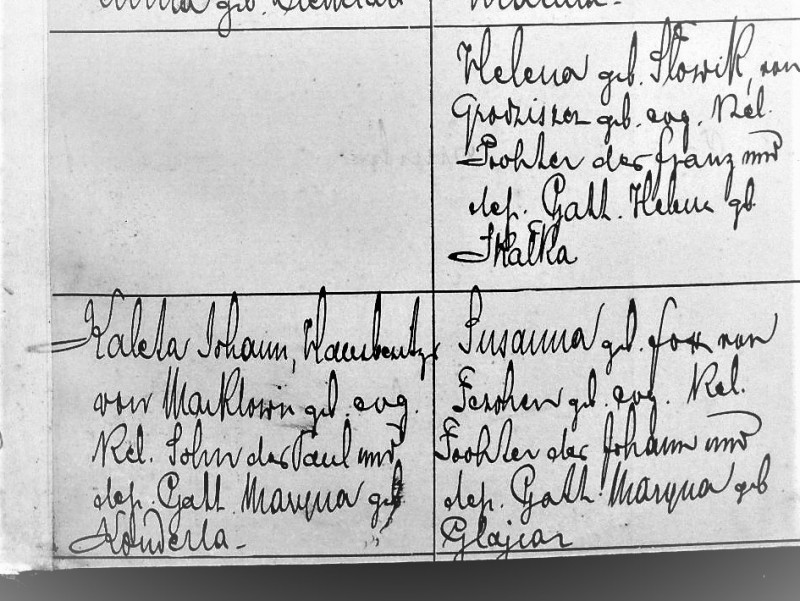 geb.
Helena geb. Słowik, von
Grodziszcz geb. evg. Rel.
Tochter des Franz und
dess. Gatt. Helene geb.
Skałka
Kaleta Johann, Hausbesitzer
von Marklowi geb. evg.
Rel. Sohn des Paul und
dess. Gatt. Maryna geb
Konderla -
Susanna geb. Fox von
geb. evg. Rel.
Tochter des Johann und
dess. Gatt. Maryna geb
Glajcar